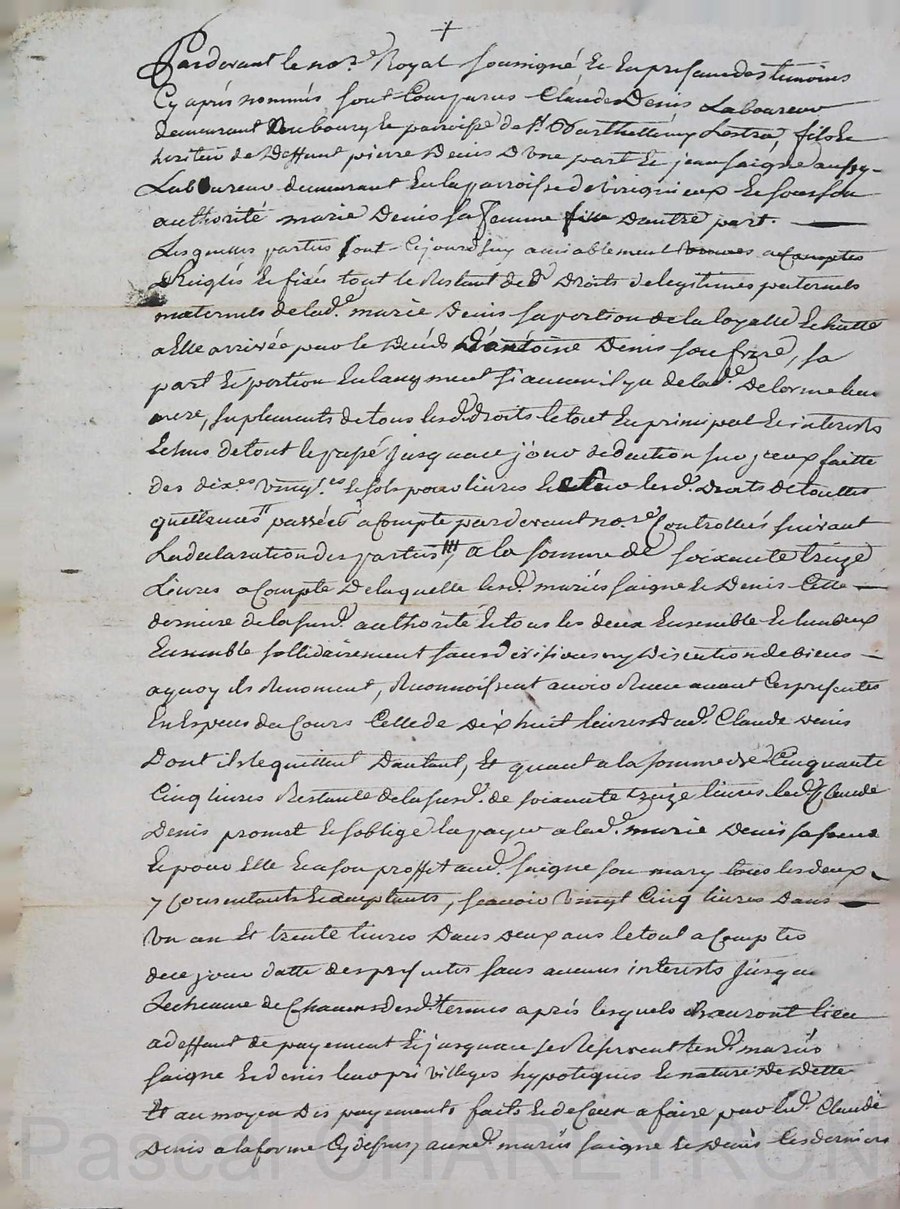 +
Pardevant le nore Royal soussigné Et En presence des temoins
Cy après nommés sont Comparus Claude Denis Laboureur
demeurant bourg Et parroisse de St Barthellemy Lestra, fils Et
heritier de deffunt pierre Denis D'une part Et jean saigne aussy
Laboureur demeurant En la parroisse de Et sous son
authorité marie Denis sa femme D'autre part.
Lesquelles parties sont Cejourd'huy amiablement accomptés
Reiglés Et fixés tout le Restant des ds Droits de legitimes paternels
maternels de lade marie Denis sa portion de la loyalle Echutte
a Elle arrivée par le Deceds D'antoine Denis son frere, sa
part Et portion En laugment si aucun il y a de lade Delorme leur
mere, suplements de tous lesds droits le tout En principal Et interests
Echus de tout le passé jusqu'a ce jour deduction sur jceux faitte
des dixes vingtes Et sols pour livres Et sur lesds Droits de touttes
quittances passées a Compte pardevant nores Controllées suivant
La declaration des parties, a la somme de soixante treize
Livres a Compte De laquelle lesds mariés saigne Et Denis Cette
derniere de la susde authorité Et tous les deux Ensemble Et lun deux
Ensemble sollidairement sans division ny Discution de biens
a quoy ils Renoncent, Reconnoissent avoir Receu avant Ces presentes
En Especes du Cours Celle de Dix huit livres Dud. Claude Denis
Dont ils le quittent D'autant, Et quant a la somme de Cinquante
Cinq livres Restante de la susde de soixante treize livres led. Claude
Denis promet Et s'oblige la payer a lade marie Denis sa soeur
Et pour Elle Et a son proffit aud. saigne son mary tous les deux
y Consentants Et acceptants, sçavoir Vingt Cinq livres Dans
Un an Et trente livres Dans Deux ans le tout a Compter
de ce jour datte des presentes sans aucuns interests jusqu'a
Lecheance de Chacun desds termes après lesquels ils auront lieu
a deffaut de payement Et jusqu'a ce se Reservent lesds mariés
saigne Et denis leur privilleges hypoteques Et nature De Dette
Et au moyen Des payements faits Et de Ceux a faire par led. Claude
Denis a la forme Cy dessus, auxds mariés saigne Et Denis Ces derniers
Pascal CHAREYRON